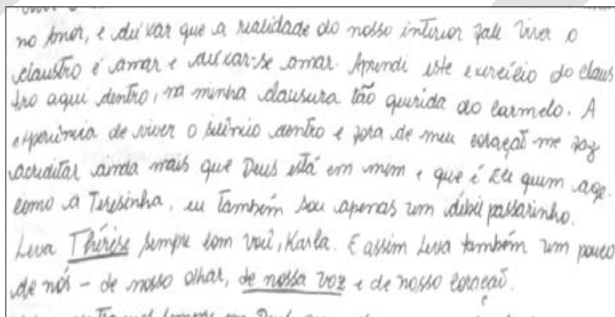 no Amor, e deixar que a realidade do nosso interior fale viver o
claustro é amar e deixar-se amar. Aprendi este exercício do claus
tro aqui dentro, na minha clausura tão querida do Carmelo. A
experiência de viver o silêncio dentro e fora de meu coração me faz
acreditar ainda mais que Deus está em mim e que é Ele quem age.
como a Teresinha, eu também sou apenas um débil passarinho.
Leva Thérèse sempre com você, Karla. E assim leva também um pouco
de nós - de nosso olhar, de nossa voz e de nosso coração.